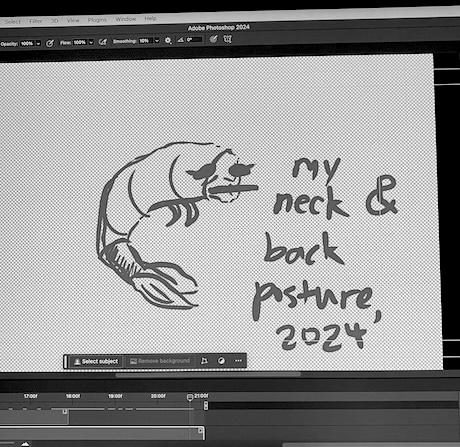 Select Filter 3D View Plugins Window Help
Adobe Photoshop 2024
Opacity: 100% Flow: 100% Smoothing: 10% 0°
my
neck &
back
posture,
2024
Select subject Remove background
17:00f 18:00f 19:00f 20:00f 21:00f